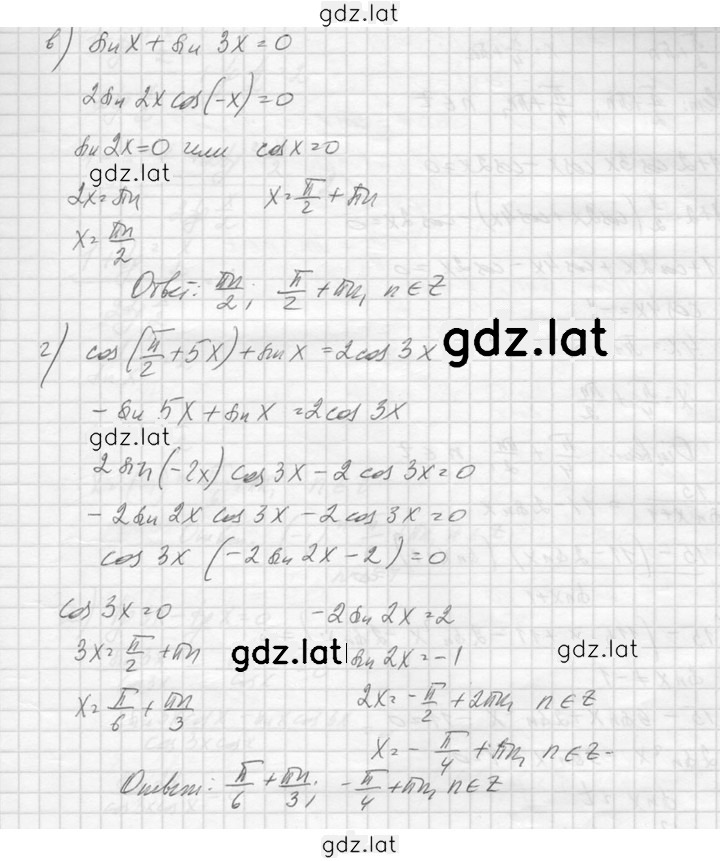 gdz.lat
в) sin x + sin 3x = 0
2 sin 2x cos(-x) = 0
sin 2x = 0 или cos x = 0
gdz.lat
2x = πn x = π/2 + πn
x = πn/2
Ответ: πn/2; π/2 + πn, n ∈ Z
г) cos(π/2 + 5x) + sin x = 2 cos 3x
gdz.lat
- sin 5x + sin x = 2 cos 3x
gdz.lat
2 sin(-2x) cos 3x - 2 cos 3x = 0
- 2 sin 2x cos 3x - 2 cos 3x = 0
cos 3x (-2 sin 2x - 2) = 0
cos 3x = 0 -2 sin 2x = 2
3x = π/2 + πn sin 2x = -1
gdz.lat gdz.lat
x = π/6 + πn/3 2x = -π/2 + 2πn, n ∈ Z
x = -π/4 + πn, n ∈ Z.
Ответ: π/6 + πn/3; -π/4 + πn, n ∈ Z
gdz.lat